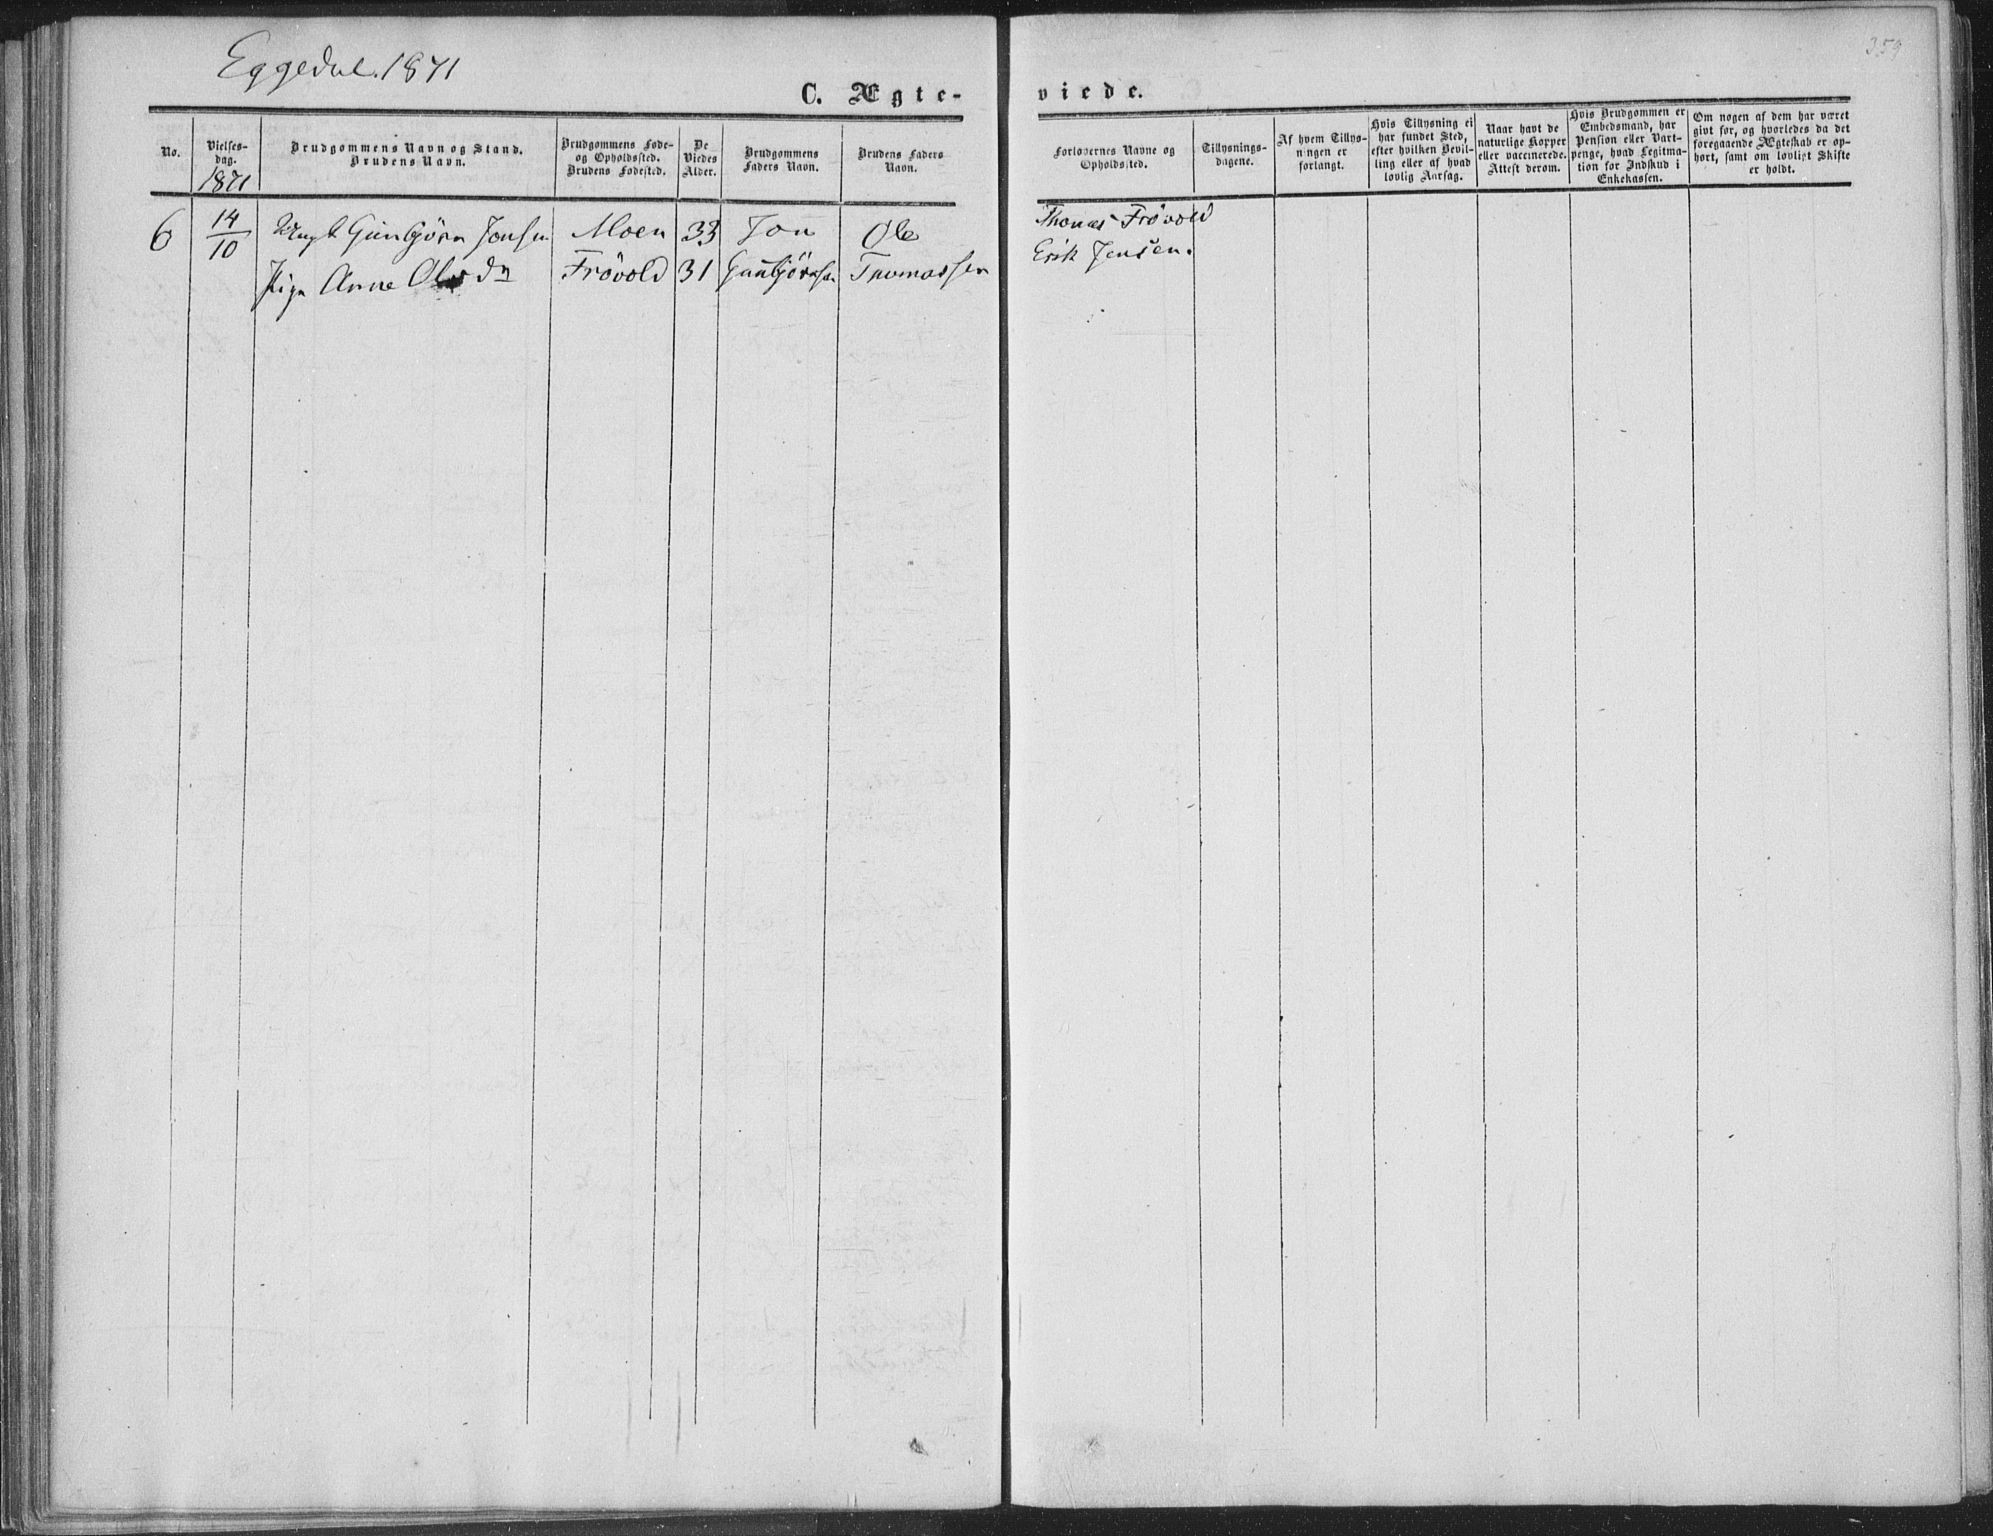 Eggedal. 1871
359
C. Ægte-
viede.
No.
Vielses-
dag.
1871
Brudgommens Navn og Stand.
Brudens Navn.
Brudgommens Føde-
og Opholdssted.
Brudens Fødested.
De
Viedes
Alder.
Brudgommens
Faders Navn.
Brudens Faders
Navn.
Forlovernes Navne og
Opholdssted.
Tillysnings-
dagene.
Af hvem Tillys-
ningen er
forlangt.
Hvis Tillysning ei
har fundet Sted,
efter hvilken Bevil-
ling eller af hvad
lovlig Aarsag.
Naar havt de
naturlige Kopper
eller vaccinerede.
Attest derom.
Hvis Brudgommen er
Embedsmand, har
Pension eller Vart-
penge, hvad Legitma-
tion for Indskud i
Enkekassen.
Om nogen af dem har været
givt før, og hvorledes da det
foregaaende Ægteskab er op-
hørt, samt om lovligt Skifte
er holdt.
6 14/10 Ungk Gunbjörn Jonsen Moen 33 Jon Ole
Pige Anne Olsdn Frövold 31 Gunbjörnsen Thomassen
Thomas Frövold
Erik Jensen.